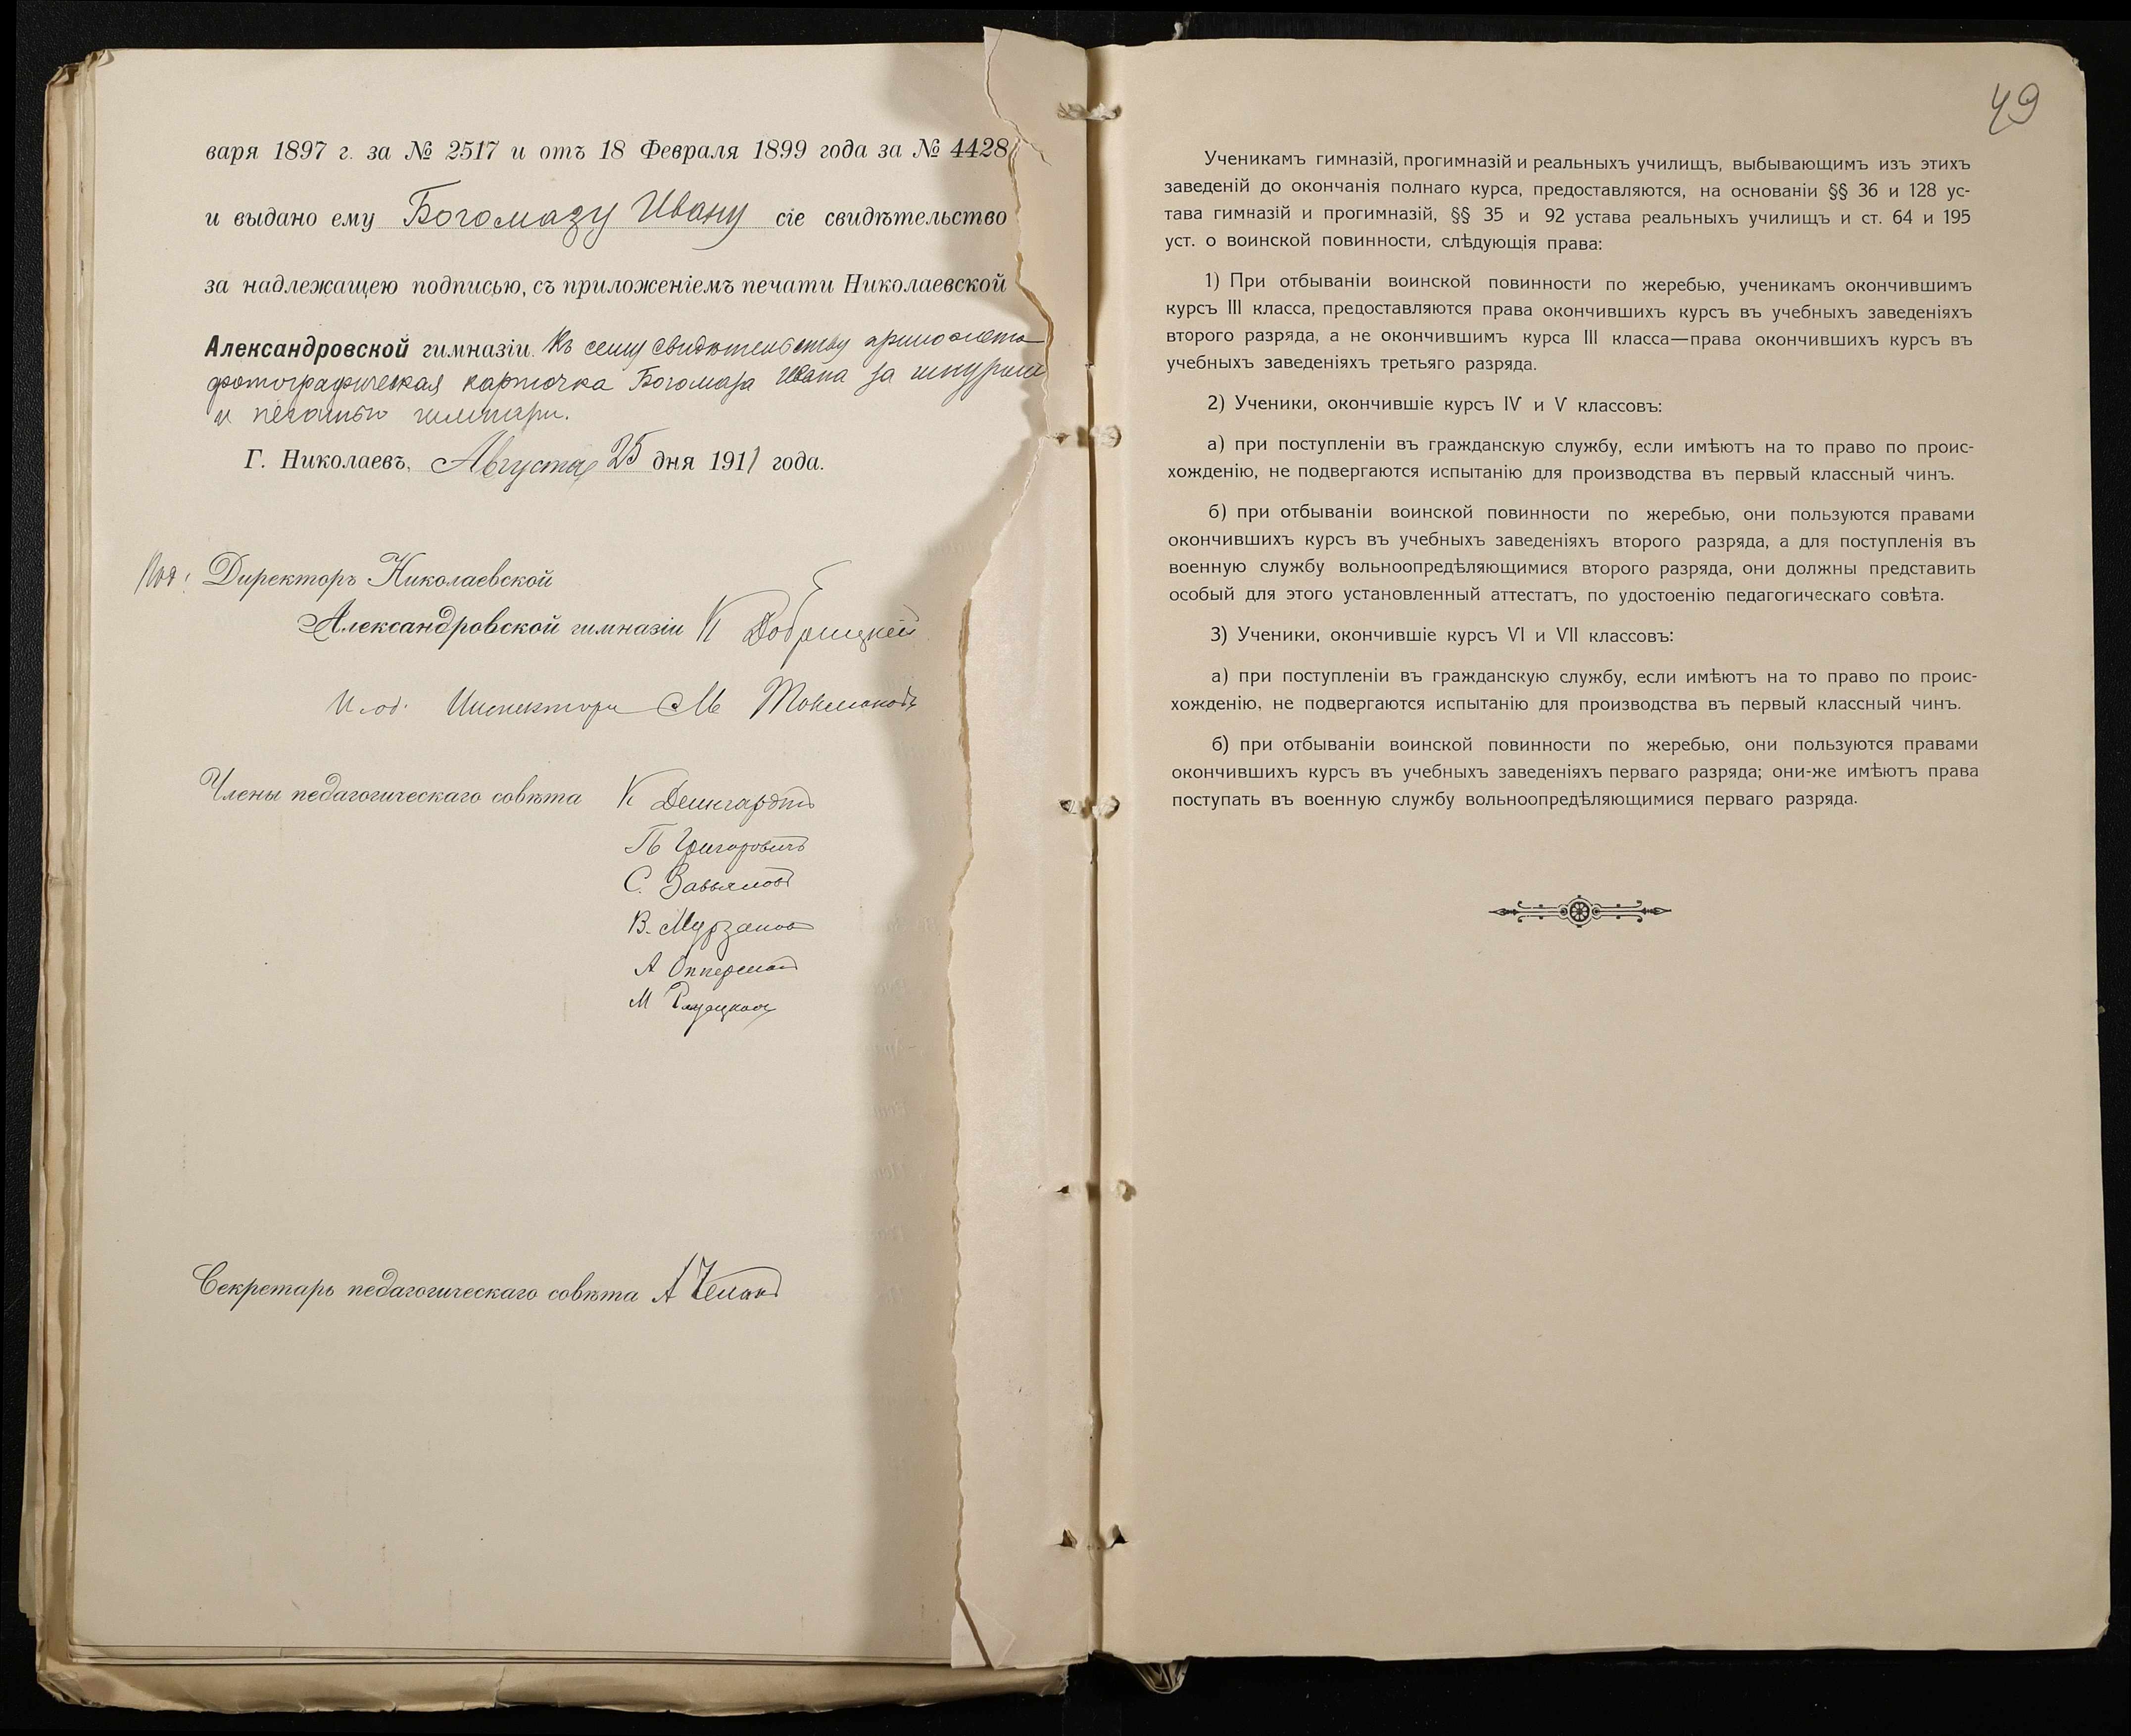 варя 1897 г. за № 2517 и отъ 18 Февраля 1899 года за № 4428,
и выдано ему Богомазу Ивану сіе свидѣтельство
за надлежащею подписью, съ приложеніемъ печати Николаевской
Александровской гимназіи. Къ сему свидѣтельству приложена
фотографическая карточка Богомаза Ивана за шнуромъ
и печатью гимназіи.
Г. Николаевъ, Августа 25 дня 1911 года.
Под: Директоръ Николаевской
Александровской гимназіи К Добрицкій
И. об. Инспектора М
Члены педагогическаго совѣта К
П Григоровичъ
С. Завьяловъ
В. Мурзановъ
А Опперманъ
М
Секретарь педагогическаго совѣта А
49
Ученикамъ гимназій, прогимназій и реальныхъ училищъ, выбывающимъ изъ этихъ
заведеній до окончанія полнаго курса, предоставляются, на основаніи §§ 36 и 128 ус-
тава гимназій и прогимназій, §§ 35 и 92 устава реальныхъ училищъ и ст. 64 и 195
уст. о воинской повинности, слѣдующія права:
1) При отбываніи воинской повинности по жеребью, ученикамъ окончившимъ
курсъ III класса, предоставляются права окончившихъ курсъ въ учебныхъ заведеніяхъ
второго разряда, а не окончившимъ курса III класса—права окончившихъ курсъ въ
учебныхъ заведеніяхъ третьяго разряда.
2) Ученики, окончившіе курсъ IV и V классовъ:
а) при поступленіи въ гражданскую службу, если имѣютъ на то право по проис-
хожденію, не подвергаются испытанію для производства въ первый классный чинъ.
б) при отбываніи воинской повинности по жеребью, они пользуются правами
окончившихъ курсъ въ учебныхъ заведеніяхъ второго разряда, а для поступленія въ
военную службу вольноопредѣляющимися второго разряда, они должны представить
особый для этого установленный аттестатъ, по удостоенію педагогическаго совѣта.
3) Ученики, окончившіе курсъ VI и VII классовъ:
а) при поступленіи въ гражданскую службу, если имѣютъ на то право по проис-
хожденію, не подвергаются испытанію для производства въ первый классный чинъ.
б) при отбываніи воинской повинности по жеребью, они пользуются правами
окончившихъ курсъ въ учебныхъ заведеніяхъ перваго разряда; они-же имѣютъ права
поступать въ военную службу вольноопредѣляющимися перваго разряда.